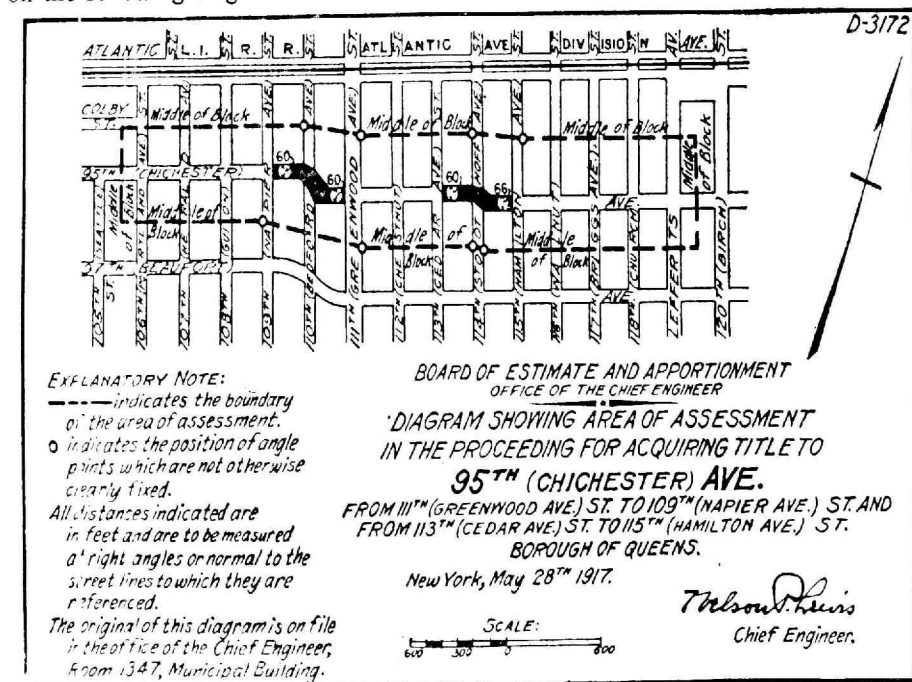 D-3172
ATLANTIC L.I. R. R. ATLANTIC AVE. DIVISION AVE.
COLBY ST.
Middle of Block
Middle of Block
Middle of Block
Middle of Block
95TH (CHICHESTER)
60
60
60
66
AVE.
Middle of Block
Middle of Block
Middle of Block
Middle of Block
97TH (BEAUFORT)
AVE.
105TH
ST.
106TH
107TH
108TH
109TH (NAPIER AVE.)
110TH (BEDFORD AVE.)
111TH (GREENWOOD AVE.)
112TH (CHESTNUT)
113TH (CEDAR AVE.) ST.
114TH
115TH (HAMILTON
116TH (WALNUT)
117TH (BRIGGS AVE.)
118TH (CHURCH)
LEFFERTS AV.
120TH (BIRCH) ST.
EXPLANATORY NOTE:
indicates the boundary
of the area of assessment.
o indicates the position of angle
points which are not otherwise
clearly fixed.
All distances indicated are
in feet and are to be measured
at right angles or normal to the
street lines to which they are
referenced.
The original of this diagram is on file
in the office of the Chief Engineer,
Room 1347, Municipal Building.
BOARD OF ESTIMATE AND APPORTIONMENT
OFFICE OF THE CHIEF ENGINEER
DIAGRAM SHOWING AREA OF ASSESSMENT
IN THE PROCEEDING FOR ACQUIRING TITLE TO
95TH (CHICHESTER) AVE.
FROM 111TH (GREENWOOD AVE.) ST. TO 109TH (NAPIER AVE.) ST. AND
FROM 113TH (CEDAR AVE.) ST. TO 115TH (HAMILTON AVE.) ST.
BOROUGH OF QUEENS.
New York, May 28TH 1917.
Nelson P. Lewis
Chief Engineer.
SCALE:
600 300 0 600